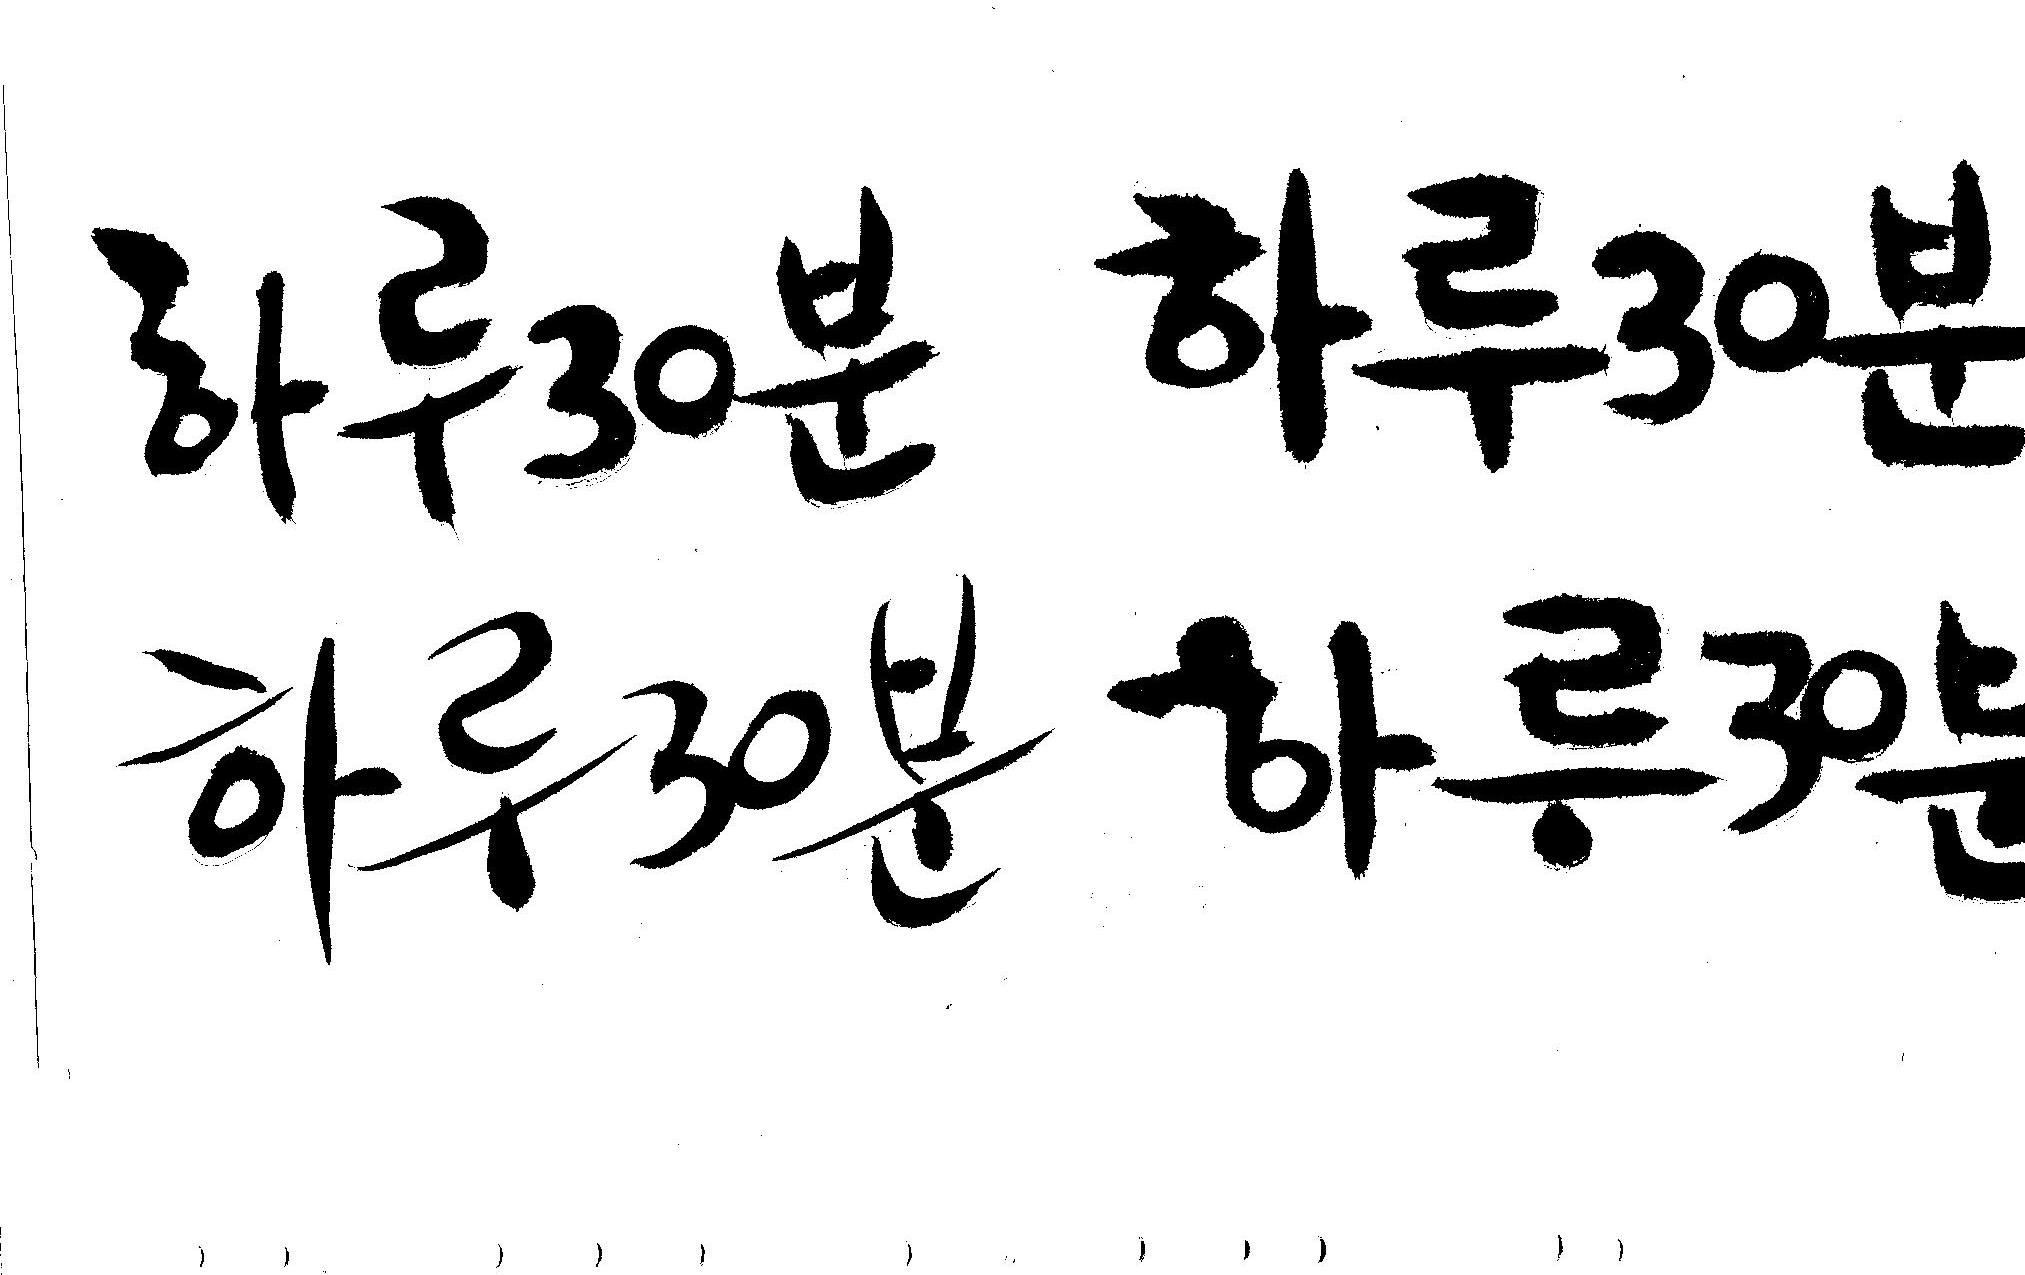 하루30분 하루30분
하루30분 하루30분